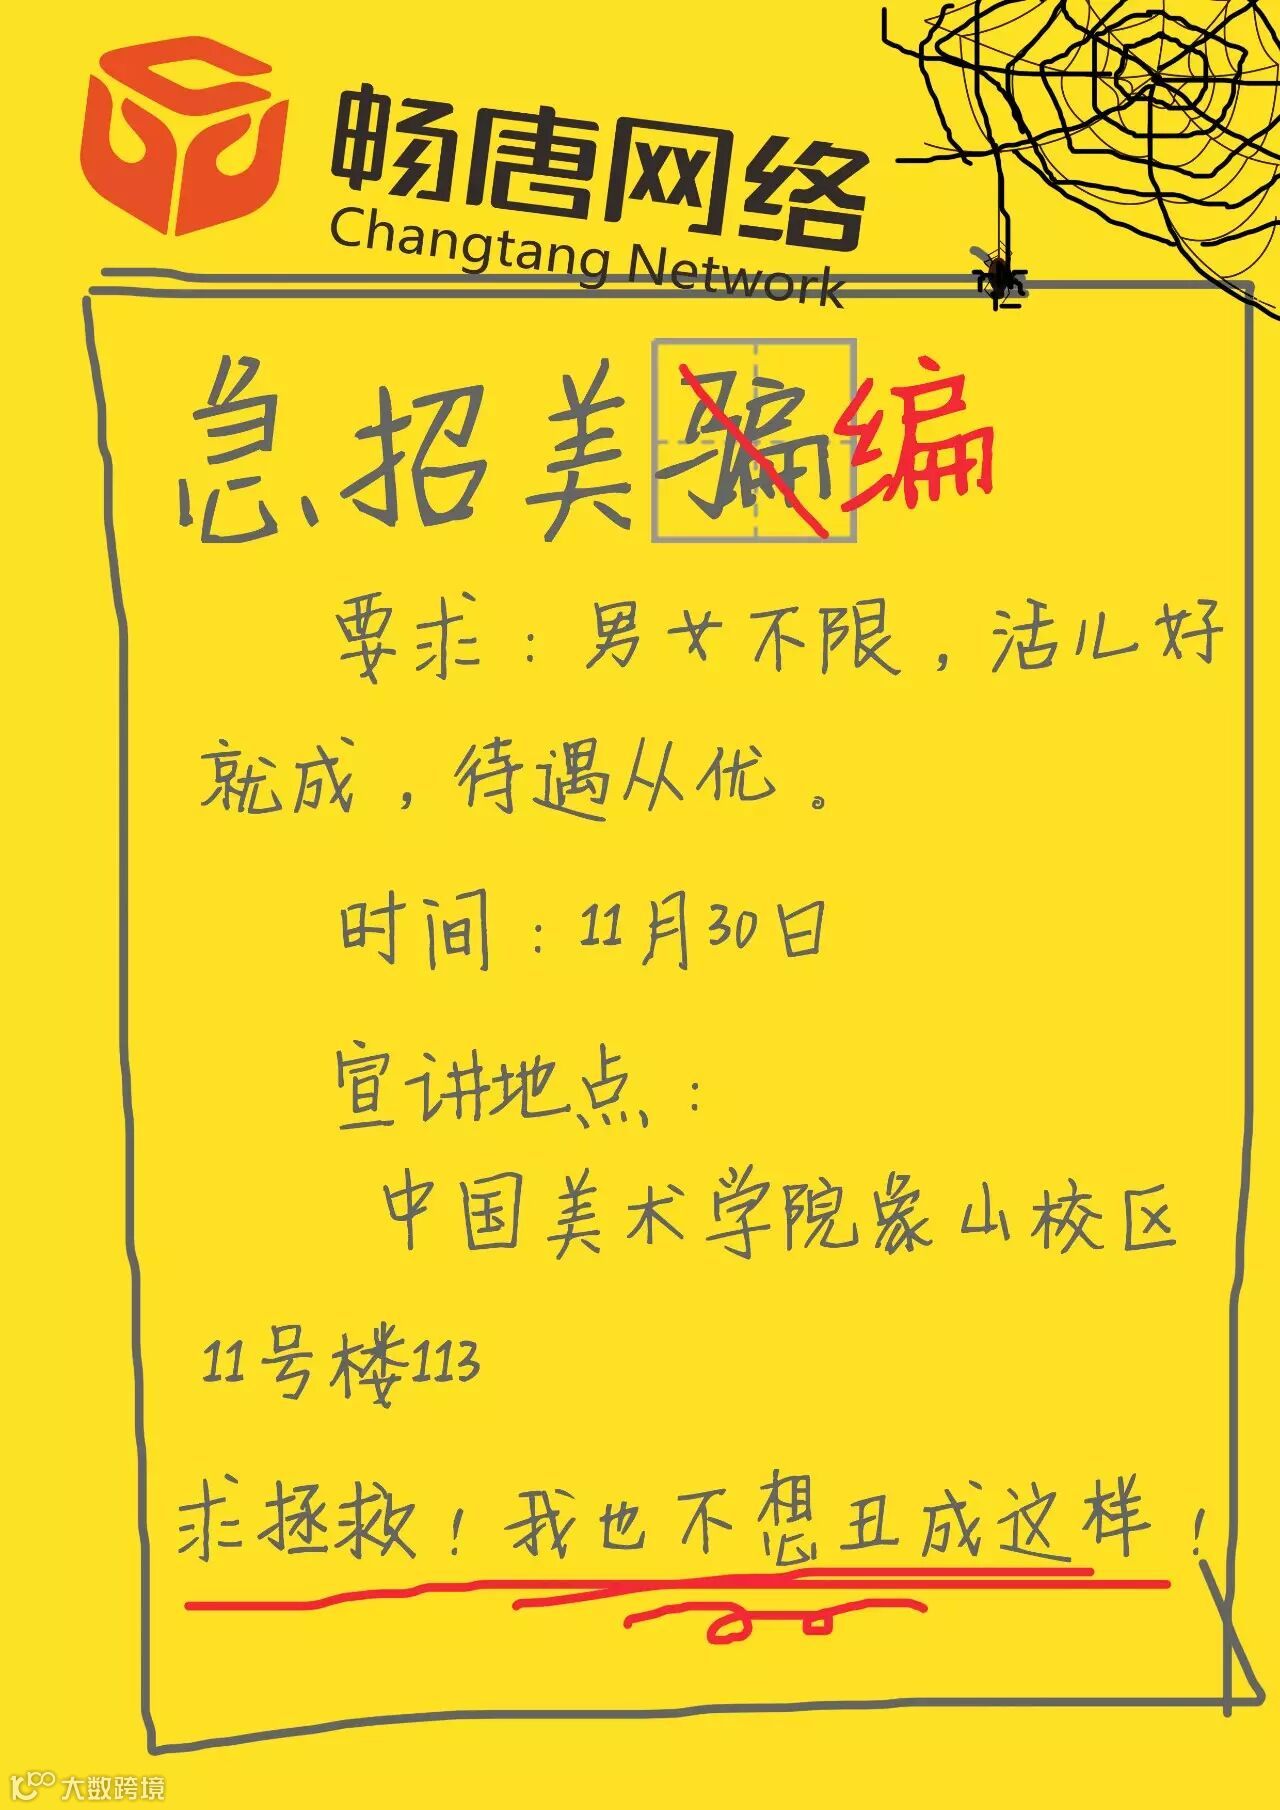 畅唐网络
Changtang Network
急招美骗编
要求：男女不限，活儿好
就成，待遇从优。
时间：11月30日
宣讲地点：
中国美术学院象山校区
11号楼113
求拯救！我也不想丑成这样！
大数跨境